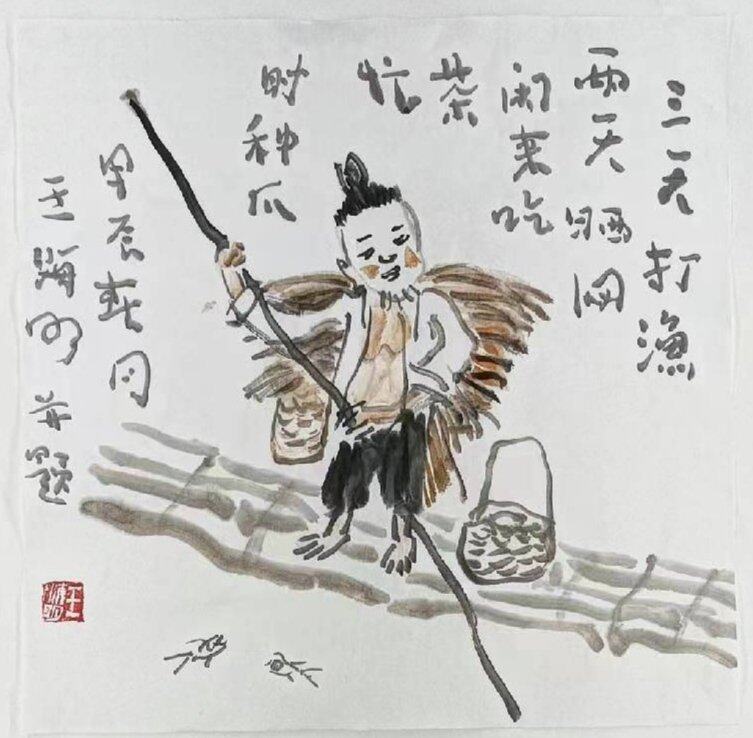 三天打漁
两天晒网
闲来吃
茶
忙
时种瓜
甲辰春月
王 明并题